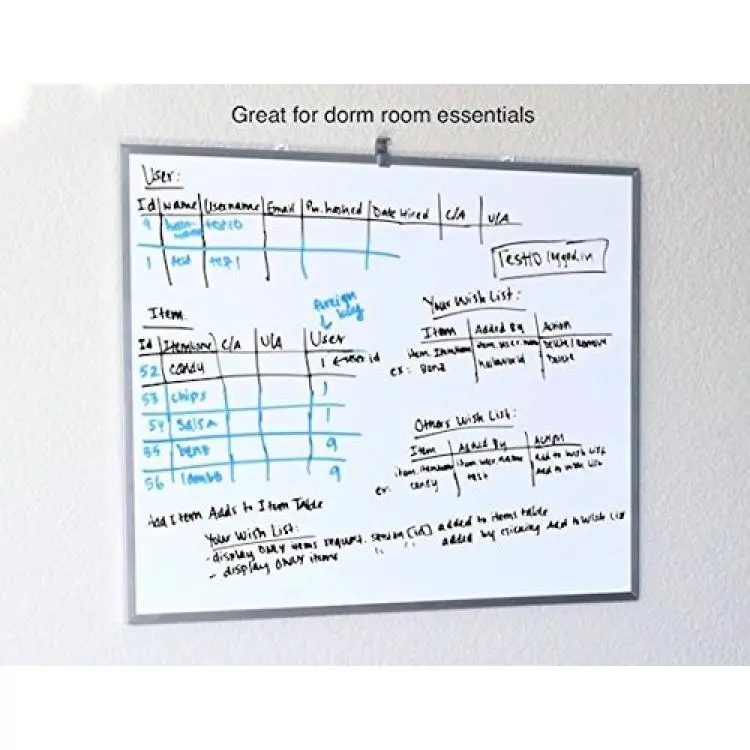 Great for dorm room essentials
User:
Id Name Username Email Pw. hashed Date Hired C/A U/A
9 test10
1 test test1
Test10 logged in
Item
foreign key
Id Itemname C/A U/A User
52 candy 1 ← user id
53 chips 1
54 salsa 1
55 benz 9
56 lambo 9
Your Wish List:
Item Added By Action
item.itemname item.user.name Delete/Remove
ex: Benz helloworld Delete
Others Wish List:
Item Added By Action
item.itemname item.user.name Add to Wish List
ex: candy test Add to Wish List
Add Item Adds to Item Table
Your Wish List:
- display ONLY items request.session[id] added to items table
- display ONLY items " " added by clicking Add to Wish List